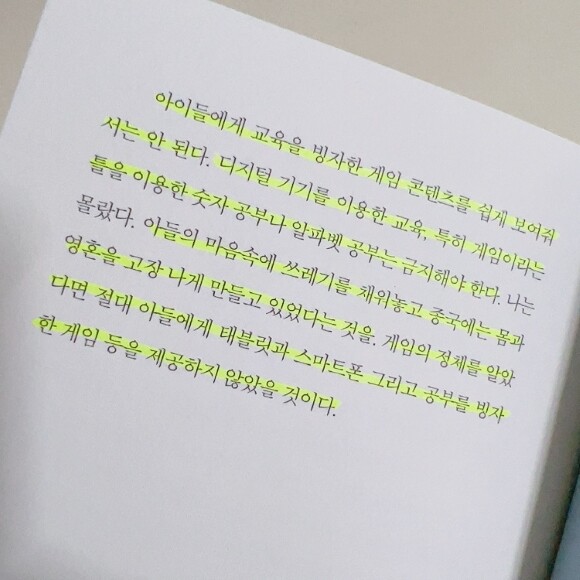 아이들에게 교육을 빙자한 게임 콘텐츠를 쉽게 보여줘
서는 안 된다. 디지털 기기를 이용한 교육, 특히 게임이라는
틀을 이용한 숫자 공부나 알파벳 공부는 금지해야 한다. 나는
몰랐다. 아들의 마음속에 쓰레기를 채워놓고 종국에는 몸과
영혼을 고장 나게 만들고 있었다는 것을. 게임의 정체를 알았
다면 절대 아들에게 태블릿과 스마트폰 그리고 공부를 빙자
한 게임 등을 제공하지 않았을 것이다.